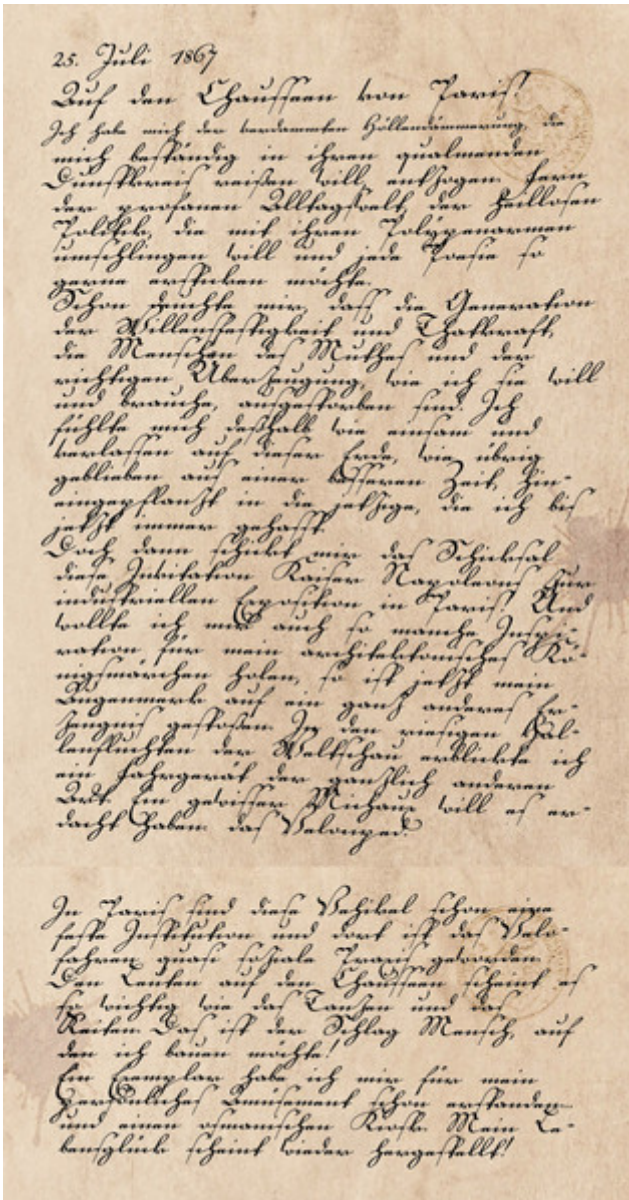 25. Juli 1867
Auf den Chausseen von Paris!
Ich habe mich der verdammten Höllendämmerung, die
mich beständig in ihren qualmenden
Dunstkreis reißen will, entzogen. Fern
der profanen Alltagswelt, der heillosen
Politik, die mit ihren Polypenarmen
umschlingen will und jede Poesie so
gerne ersticken möchte.
Schon deuchte mir, dass die Generation
der Willensfestigkeit und Thatkraft,
die Menschen des Muthes und der
richtigen Überzeugung, wie ich sie will
und brauche, ausgestorben sind. Ich
fühlte mich deßhalb wie einsam und
verlassen auf dieser Erde, wie übrig
geblieben aus einer besseren Zeit, hin-
eingepflanzt in die jetzige, die ich bis
jetzt immer gehasst.
Doch dann schickt mir das Schicksal
diese Invitation Kaiser Napoleons zur
industriellen Exposition in Paris! Und
wollte ich mir auch so manche Inspi-
ration für mein architektonisches Kö-
nigsmärchen holen, so ist jetzt mein
Augenmerk auf ein ganz anderes Er-
zeugnis gestoßen. In den riesigen Hal-
lenfluchten der Weltschau erblickte ich
ein Fahrgerät der gänzlich anderen
Art. Ein gewisser Michaux will es er-
dacht haben: das Velociped.
In Paris sind diese Vehikel schon eine
feste Institution und dort ist das Velo-
fahren quasi soziale Praxis geworden.
Den Leuten auf den Chausseen scheint es
so wichtig wie das Tanzen und das
Reiten. Das ist der Schlag Mensch, auf
den ich bauen möchte!
Ein Exemplar habe ich mir für mein
persönliches Amüsement schon erstanden
und einen osmanischen Kiosk. Mein Le-
bensglück scheint wieder hergestellt!